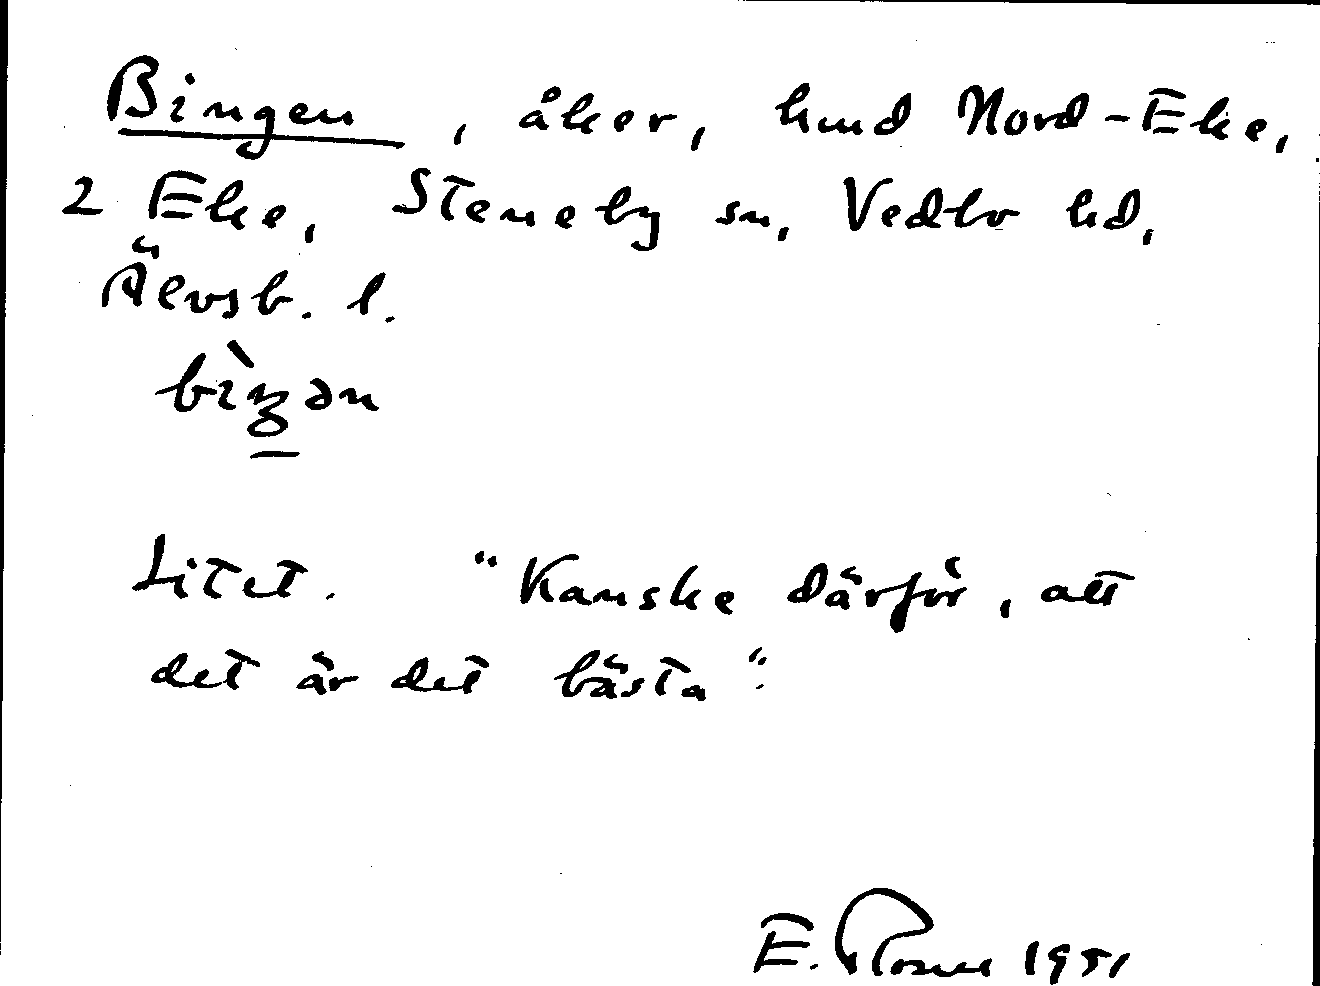 Bingen, åker, hmd Nord-Eke,
2 Eke, Steneby sn, Vedbo hd,
Älvsb. l.
Litet. "Kanske därför, att
det är det bästa".
E. 1951